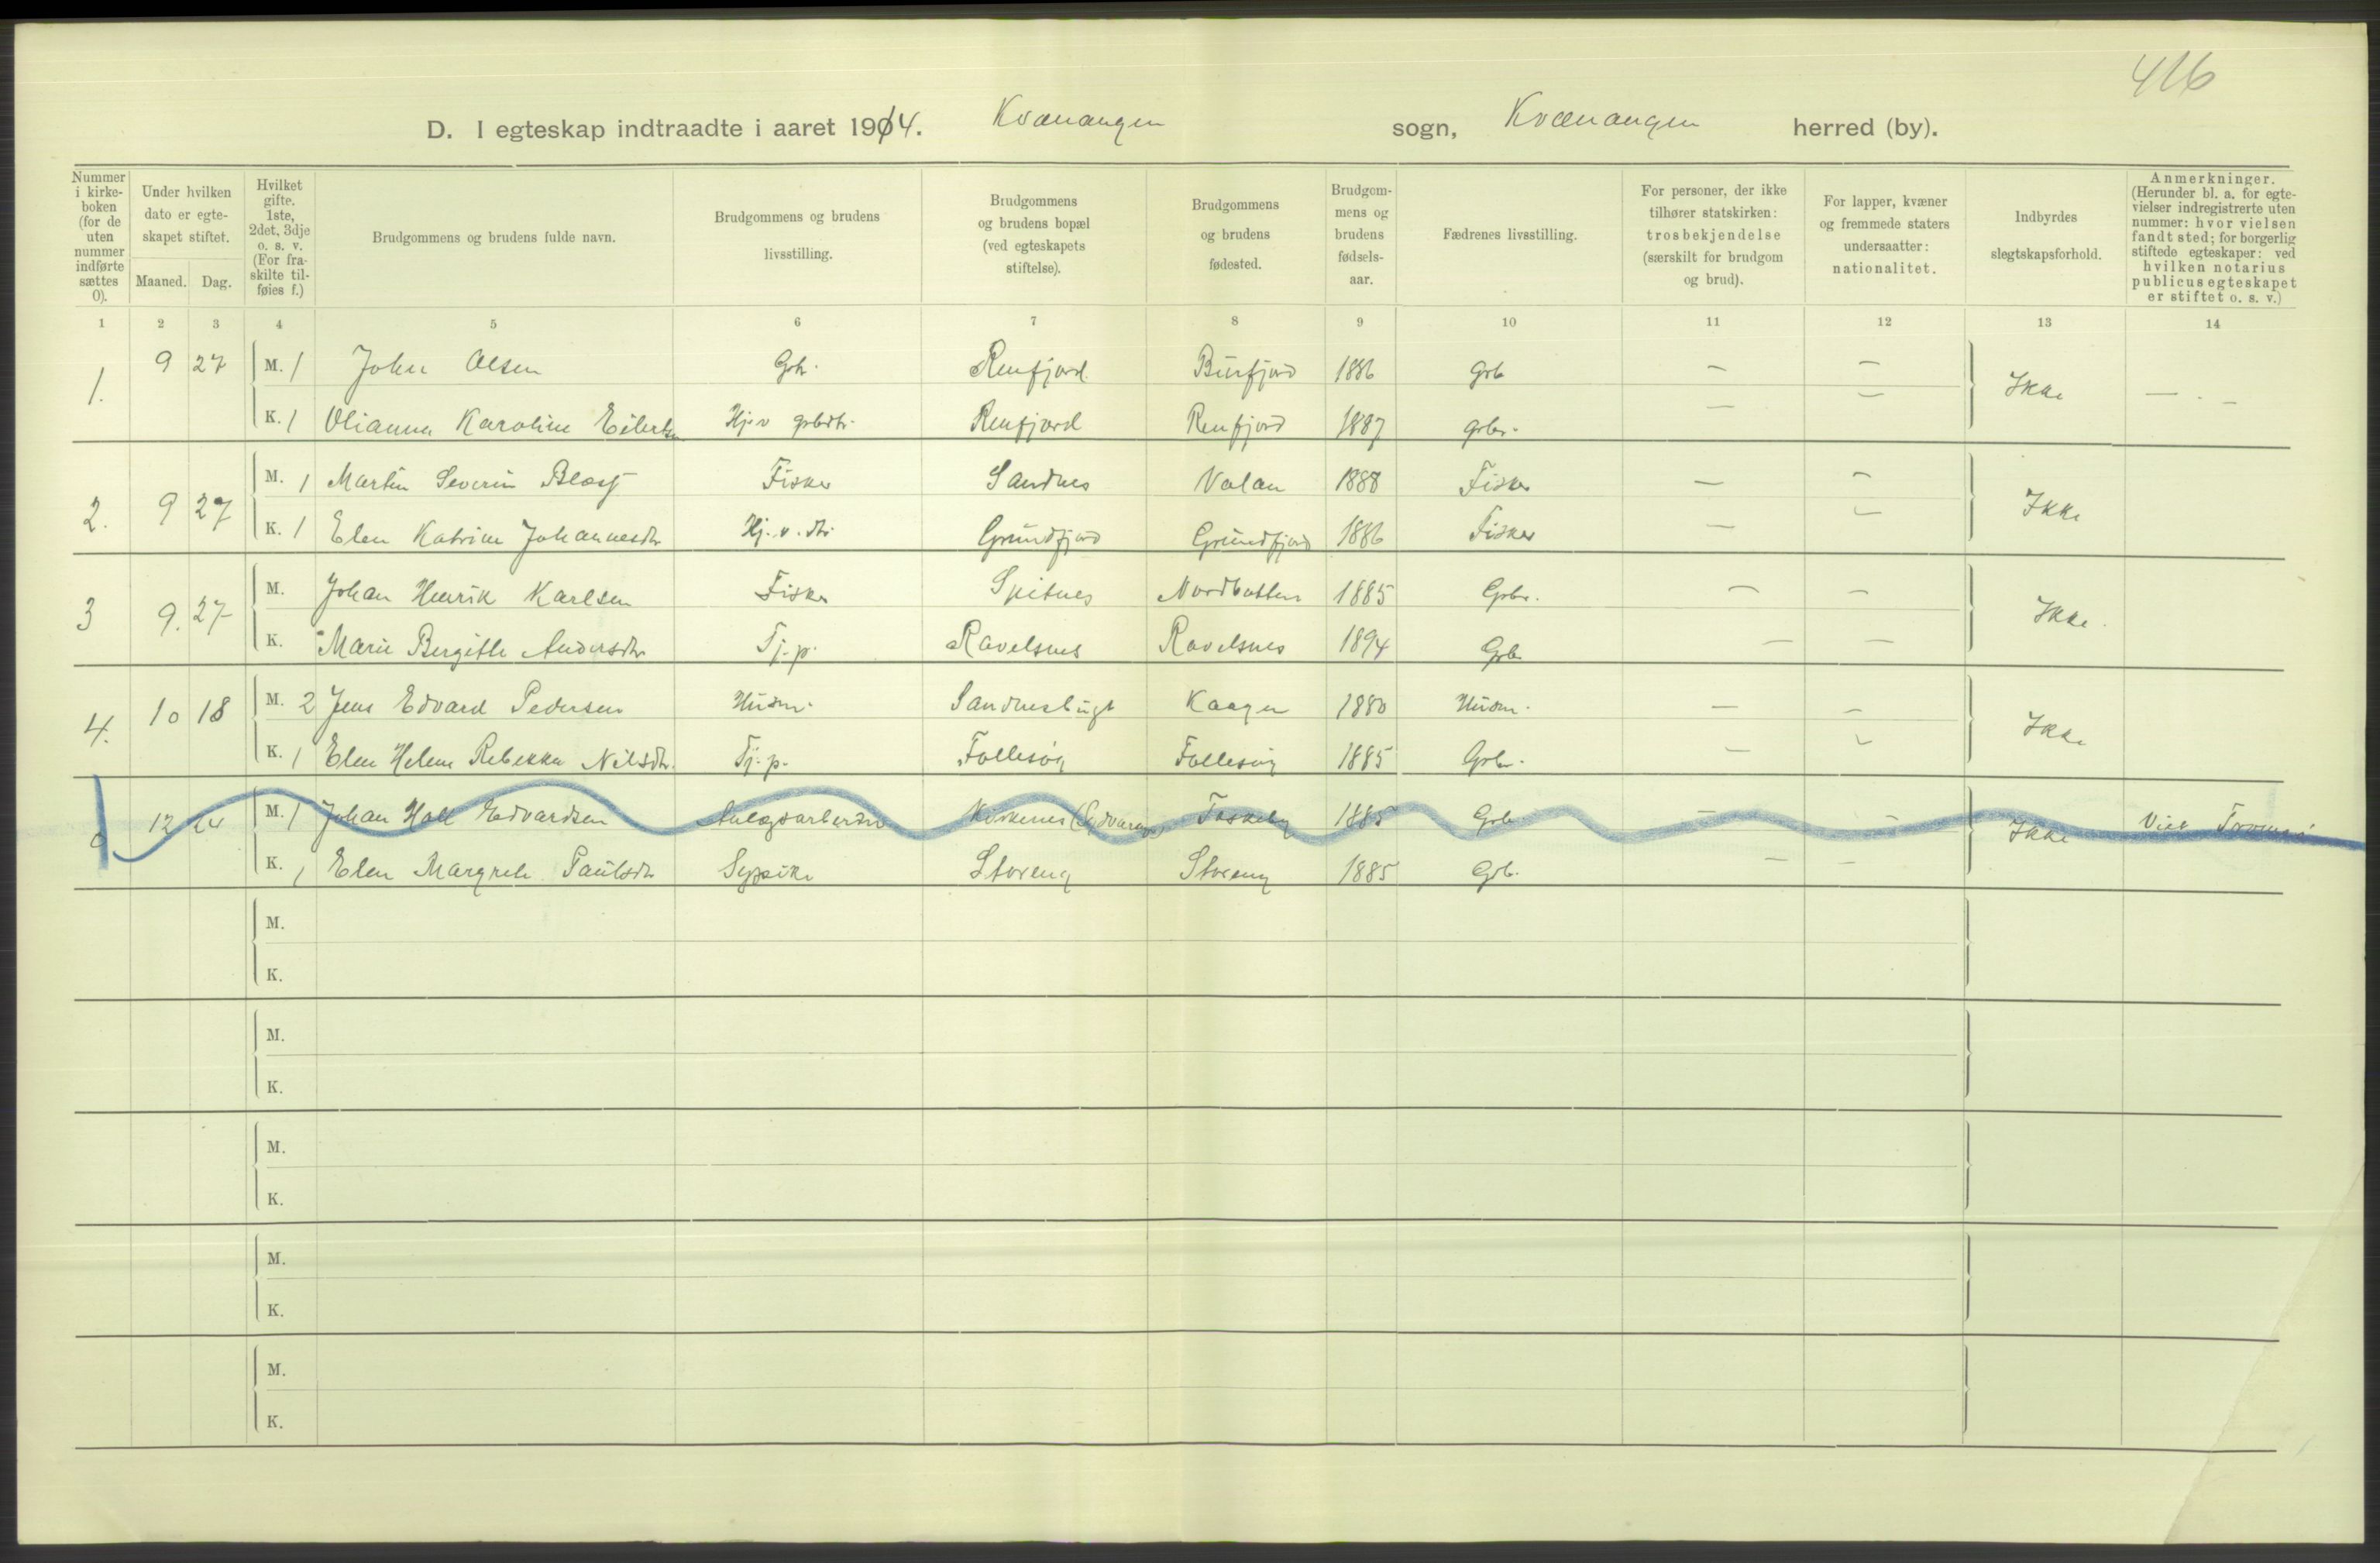 416
D. I egteskap indtraadte i aaret 1914. Kvænangen sogn, Kvænangen herred (by).
Nummer i kirke-boken (for de uten nummer indførte sættes 0).
Under hvilken dato er egte-skapet stiftet.
Maaned. Dag.
Hvilket gifte. 1ste, 2det, 3dje o. s. v. (For fra-skilte til-føies f.)
Brudgommens og brudens fulde navn.
Brudgommens og brudens livsstilling.
Brudgommens og brudens bopæl (ved egteskapets stiftelse).
Brudgommens og brudens fødested.
Brudgom-mens og brudens fødsels-aar.
Fædrenes livsstilling.
For personer, der ikke tilhører statskirken: trosbekjendelse (særskilt for brudgom og brud).
For lapper, kvæner og fremmede staters undersaatter: nationalitet.
Indbyrdes slegtskapsforhold.
Anmerkninger. (Herunder bl. a. for egte-vielser indregistrerte uten nummer: hvor vielsen fandt sted; for borgerlig stiftede egteskaper: ved hvilken notarius publicus egteskapet er stiftet o. s. v.)
1 2 3 4 5 6 7 8 9 10 11 12 13 14
1. 9 27 M. 1 John Olsen Grb. Renfjord Burfjord 1886 Grb — — Ikke — . —
K. 1 Olianna Karoline Eilertsen Hj. v grbdtr. Renfjord Renfjord 1887 Grbr. — —
2. 9 27 M. 1 Martin Severin Blæst Fisker Sandnes Valan 1888 Fisker — — Ikke
K. 1 Elen Katrine Johannesdtr Hj. v. dtr Grundfjord Grundfjord 1886 Fisker — —
3 9. 27 M. Johan Henrik Karlsen Fisker Spitnes Nordbotten 1885 Grbr. — — Ikke.
K. Marie Bergitte Andersdtr Tj. p. Ravelsnes Ravelsnes 1894 Grb — —
4. 10 18 M. 2 Jens Edvard Pedersen Husm. Sandnesbugt Kaagen 1880 Husm. — — Ikke
K. 1 Elen Helene Rebekka Nilsdtr. Tj. p. Follesøy Follesøy 1885 Grbr. — —
0 12 24 M. 1 Johan Hall Edvardsen Anlægsarbeider Kirkenes (Sydvaranger) 1885 Grb — — Ikke Viet Tromsø
K. 1 Elen Margrete Paulsdtr Sypike Storeng Storeng 1885 Grb. — —
M.
K.
M.
K.
M.
K.
M.
K.
M.
K.